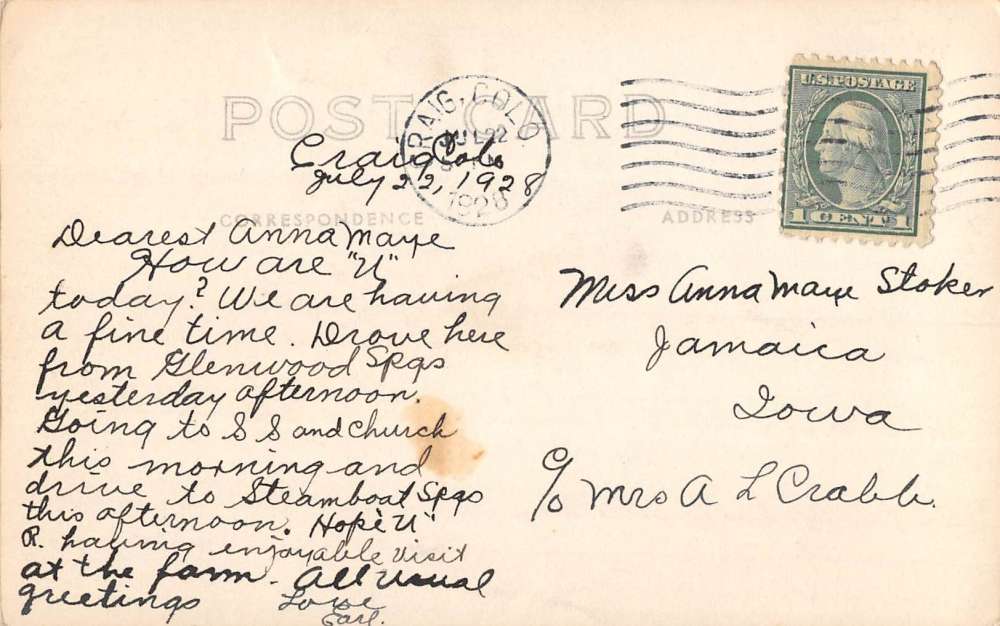 POST CARD
CRAIG, COLO
JUL 22
1928
U.S. POSTAGE
1 CENT 1
Craig Colo
July 22, 1928
CORRESPONDENCE
ADDRESS
Dearest Anna Maye
How are "U"
today? We are having
a fine time. Drove here
from Glenwood Spgs
yesterday afternoon.
Going to S S and church
this morning and
drive to Steamboat Spgs
this afternoon. Hope "U"
R. having enjoyable visit
at the farm. All usual
greetings
Love
Earl.
Miss Anna Maye Stoker
Jamaica
Iowa
c/o Mrs A L Crabb.